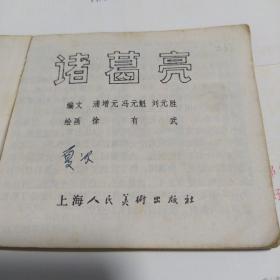 诸葛亮
编文 潘增元 冯元魁 刘元胜
绘画 徐有武
上海人民美術出版社